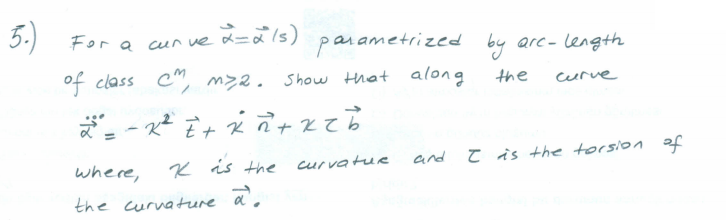 5.) For a curve α⃗=α⃗(s) parametrized by arc-length
of class Cᵐ, m≥2. Show that along the curve
α⃗⃛ = -κ² t⃗ + κ̇ n⃗ + κ τ b⃗
where, κ is the curvatue and τ is the torsion of
the curvature α⃗.